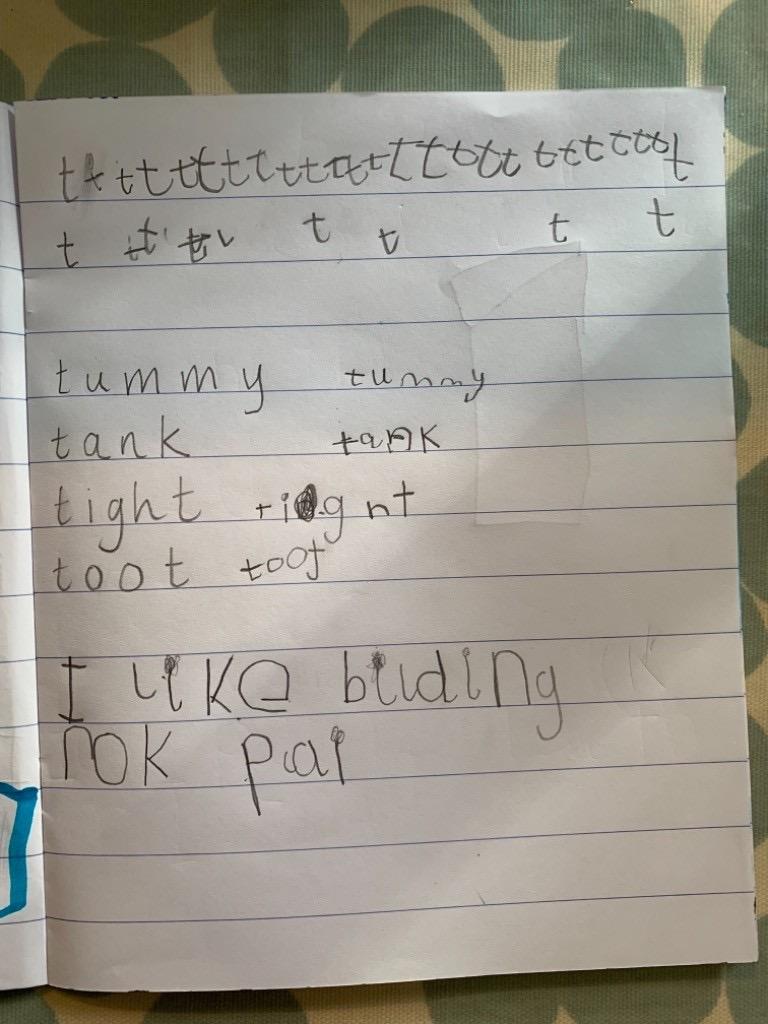 t t t t t t t t t t t t t t t t t t t t t t t t t t t
t t t t t t t t t
tummy tummy
tank tank
tight tignt
toot toot
I like bilding
nok pai